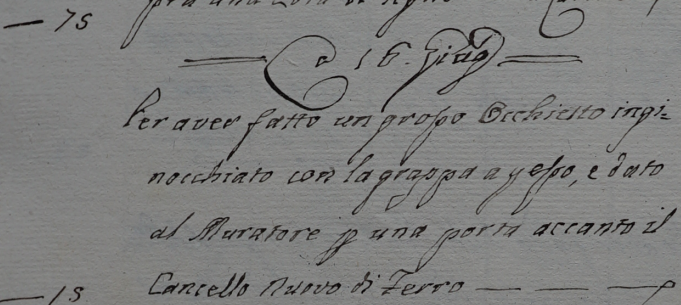 — 75
pra una
A 16. Giug
Per aver fatto un grosso Occhietto ingi=
nocchiato con la grappa a gesso, e dato
al Muratore p una porta accanto il
— 15 Cancello Nuovo di Ferro — — —